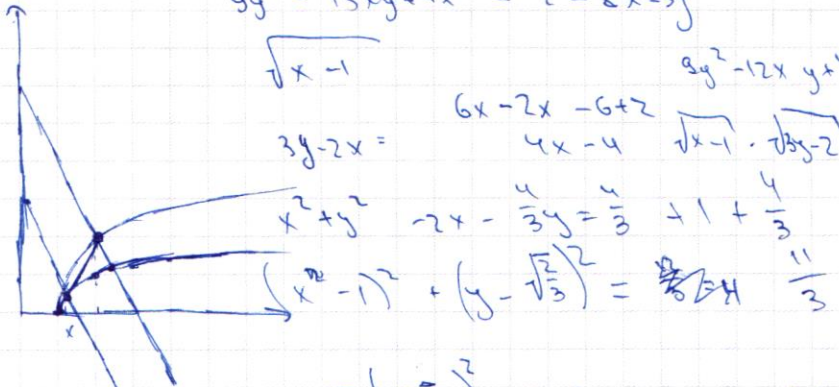 √(x-1)
9y²-12xy+
6x-2x-6+2
3y-2x=
4x-4
√(x-1) · √(3y-2
x²+y² -2x - 4/3 y = 4/3 +1 + 4/3
(x-1)² + (y-√(2/3))² = 11/3
x